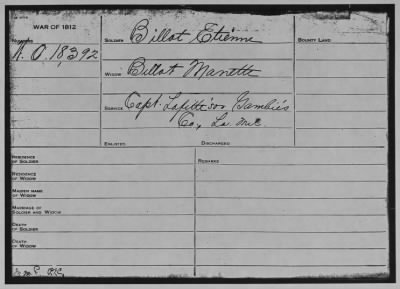 WAR OF 1812
NUMBERS
SOLDIER Billot Etienne
BOUNTY LAND
A. O. 18,392
WIDOW Billot Manette
SERVICE Capt. Lafitte's or Gambie's
Co., La. Mil.
ENLISTED DISCHARGED
RESIDENCE OF SOLDIER
REMARKS
RESIDENCE OF WIDOW
MAIDEN NAME OF WIDOW
MARRIAGE OF SOLDIER AND WIDOW
DEATH OF SOLDIER
DEATH OF WIDOW